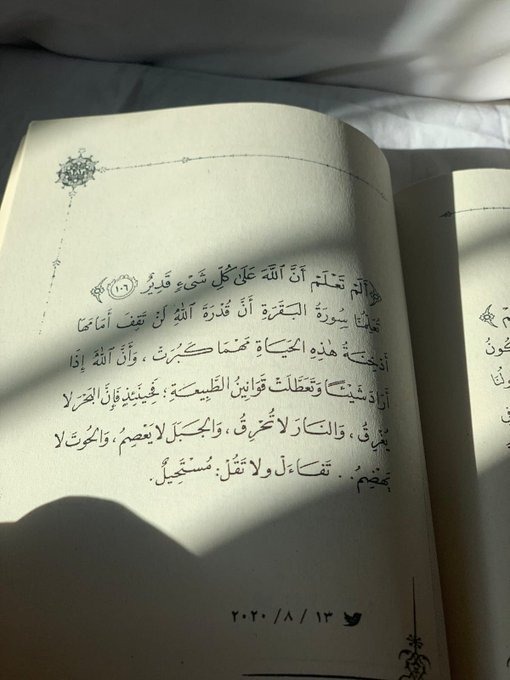 ﴿أَلَمْ تَعْلَمْ أَنَّ ٱللَّهَ عَلَىٰ كُلِّ شَىْءٍ قَدِيرٌ ١٠٦﴾
تُعَلِّمُنَا سُورَةُ البَقَرَةِ أَنَّ قُدْرَةَ اللهِ لَنْ تَقِفَ أَمَامَهَا
أَدْخِنَةُ هٰذِهِ الحَيَاةِ مَهْمَا كَبُرَتْ، وَأَنَّ اللهَ إِذَا
أَرَادَ شَيْئًا وَتَعَطَّلَتْ قَوَانِينُ الطَّبِيعَةِ؛ فَحِينَئِذٍ فَإِنَّ البَحْرَ لَا
يُغْرِقُ، وَالنَارَ لَا تُحْرِقُ، وَالجَبَلَ لَا يَعْصِمُ، وَالحُوتَ لَا
يَهْضِمُ.. تَفَاءَلْ وَلَا تَقُلْ: مُسْتَحِيلٌ.
١٣ / ٨ / ٢٠٢٠